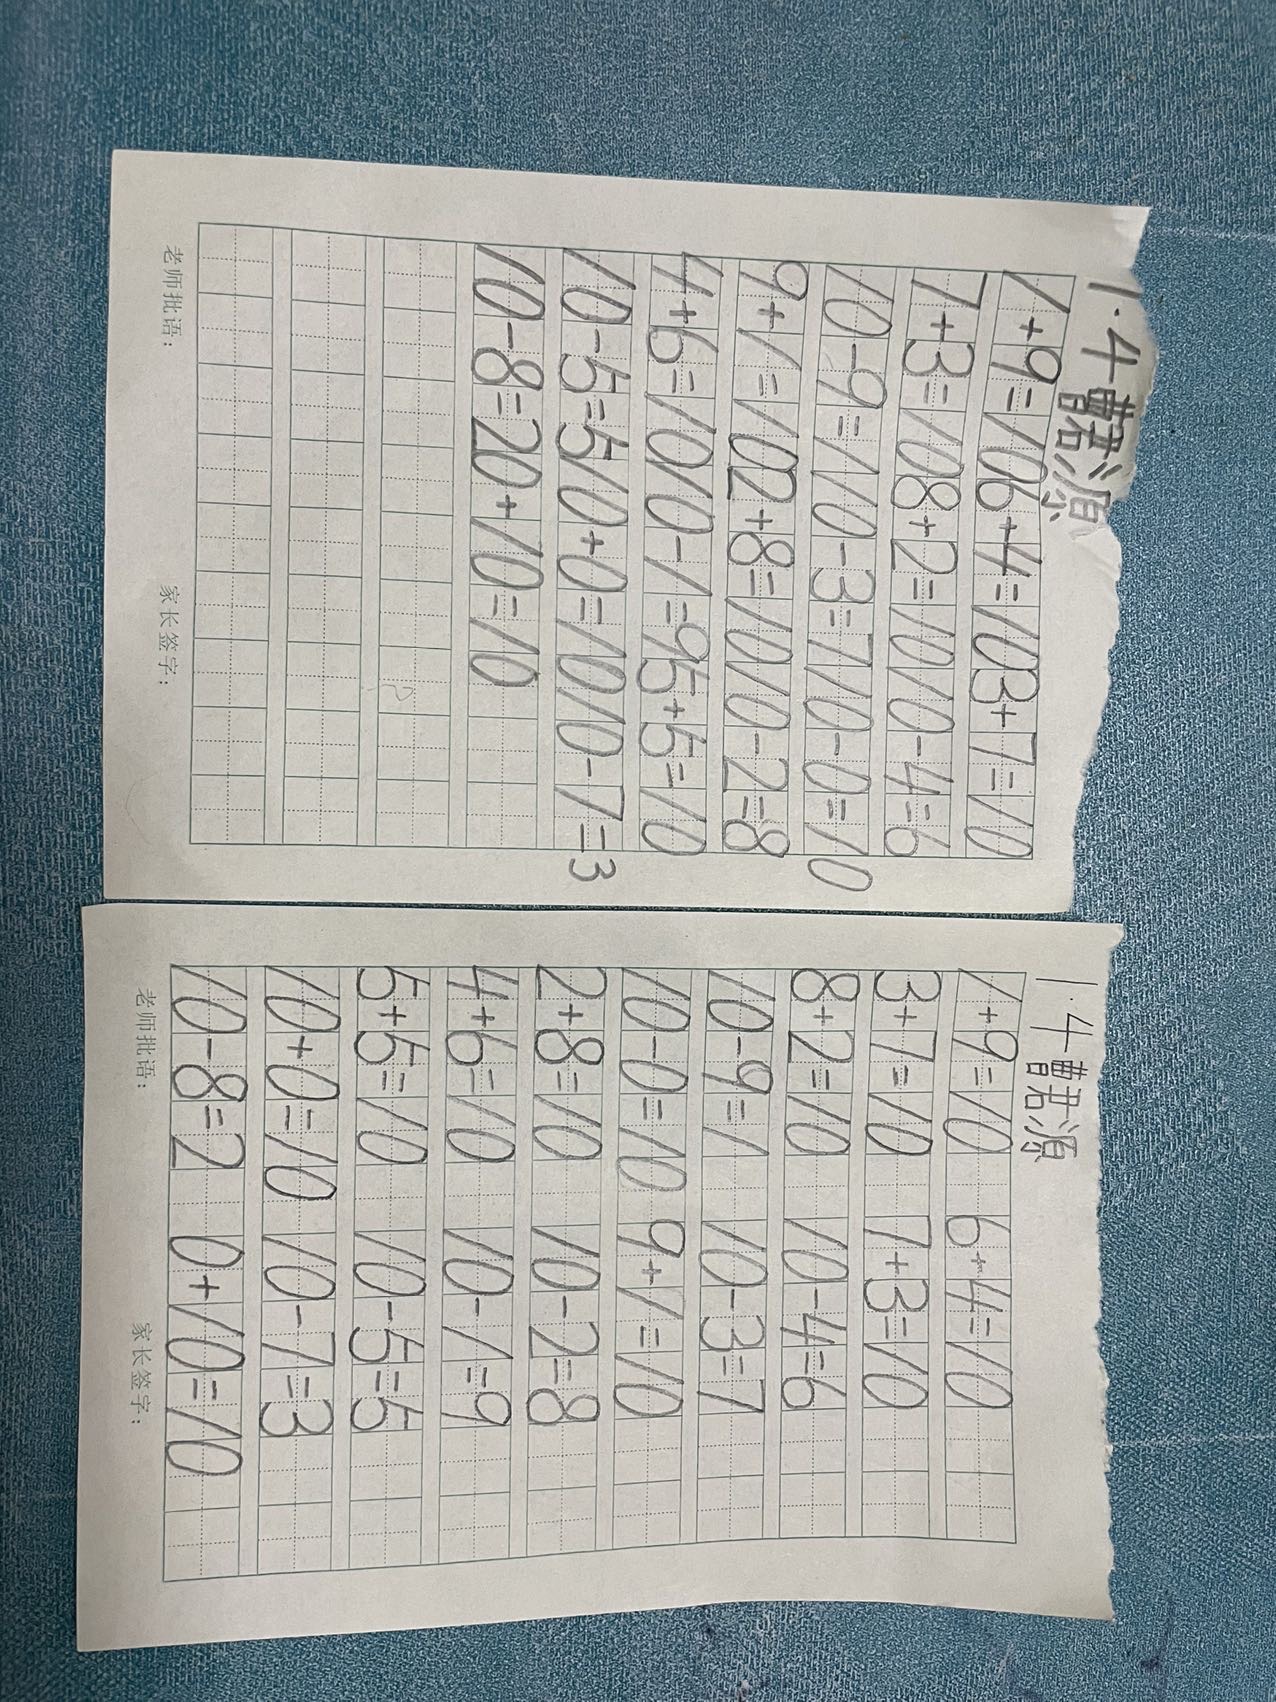 1.4曹君源
1+9=106+4=103+7=10
7+3=108+2=1010-4=6
10-9=110-3=710-0=10
9+1=102+8=1010-2=8
4+6=1010-1=95+5=10
10-5=510+0=1010-7=3
10-8=20+10=10
老师批语： 家长签字：
1.4曹君源
1+9=10 6+4=10
3+7=10 7+3=10
8+2=10 10-4=6
10-9=1 10-3=7
10-0=10 9+1=10
2+8=10 10-2=8
4+6=10 10-1=9
5+5=10 10-5=5
10+0=10 10-7=3
10-8=2 0+10=10
老师批语： 家长签字：